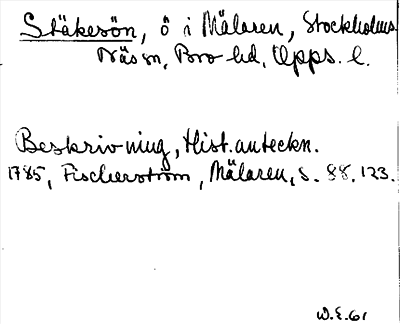 Stäkesön, ö i Mälaren, Stockholms
Näs sn, Bro hd, Upps. l.
Beskrivning, Hist. anteckn.
1785, Fischerström, Mälaren, s. 88, 123.
W.E. 61